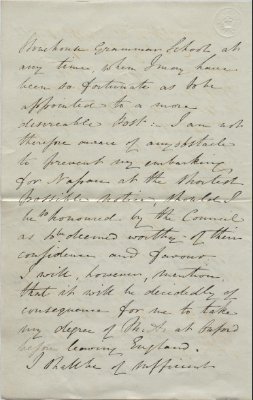 Grammar School at
any time, when I may have
been so fortunate as to be
appointed to a more
desireable Post :- I am not
therefore aware of any obstacle
to prevent my embarking
for Nassau at the shortest
possible notice, should I
be honoured by the Council
as to deemed worthy of their
confidence and favour
I will, however, mention,
that it will be decidedly of
consequence for me to take
my degree of M.A. at Oxford
before leaving England.
I shall be of sufficient